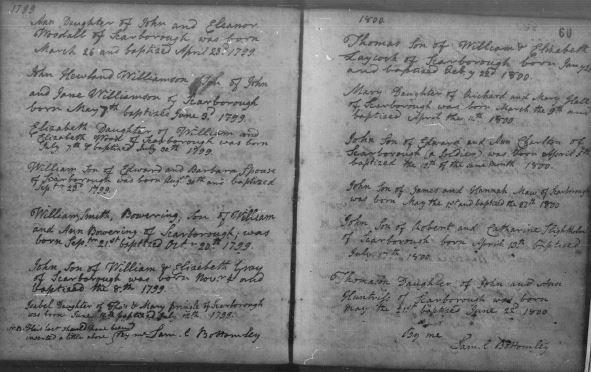 1799
Ann Daughter of John and Eleanor
Woodall of Scarborough was born
March 26 and baptized April 23d 1799.
John Hewland Williamson Son of John
and Jane Williamson of Scarborough
born May 7th baptized June 9th 1799.
Elizabeth Daughter of William and
Elizabeth Wood of Scarborough was born
July 7th & baptized July 30th 1799.
William Son of Edward and Barbara Spouse
of Scarborough was born Augt 30th and baptized
Sepr 29th 1799.
William Smith Bowering, Son of William
and Ann Bowering of Scarborough, was
born Sepr 21st baptized Octr 20th 1799.
John, Son of William & Elizabeth Gray
of Scarborough was born Novr and
baptized the 8th 1799.
Isabel Daughter of & Mary of Scarborough
was born June baptized July 1799.
NB. This last should have been
inserted a little above By me Sam. l Bottomley
1800.
60
Thomas Son of William & Elizabeth
Laycock of Scarborough born Jany
and baptized Feby 23d 1800.
Mary Daughter of Richard and Mary Hall
of Scarborough was born March the 9th and
baptized April the 11th 1800
John Son of Edward and Ann Charlton of
Scarborough (a Soldier) was born April 5th
baptized the 12th of the same Month 1800.
John Son of James and Hannah Maw of Scarborough
was born May the 1st and baptized the 27th 1800
John Son of Robert and Catharine
of Scarborough born April 13th baptized
July 1800.
Thomasin Daughter of John and Ann
of Scarborough was born
May the 21st baptized June 22d 1800
By me
Sam. l Bottomley